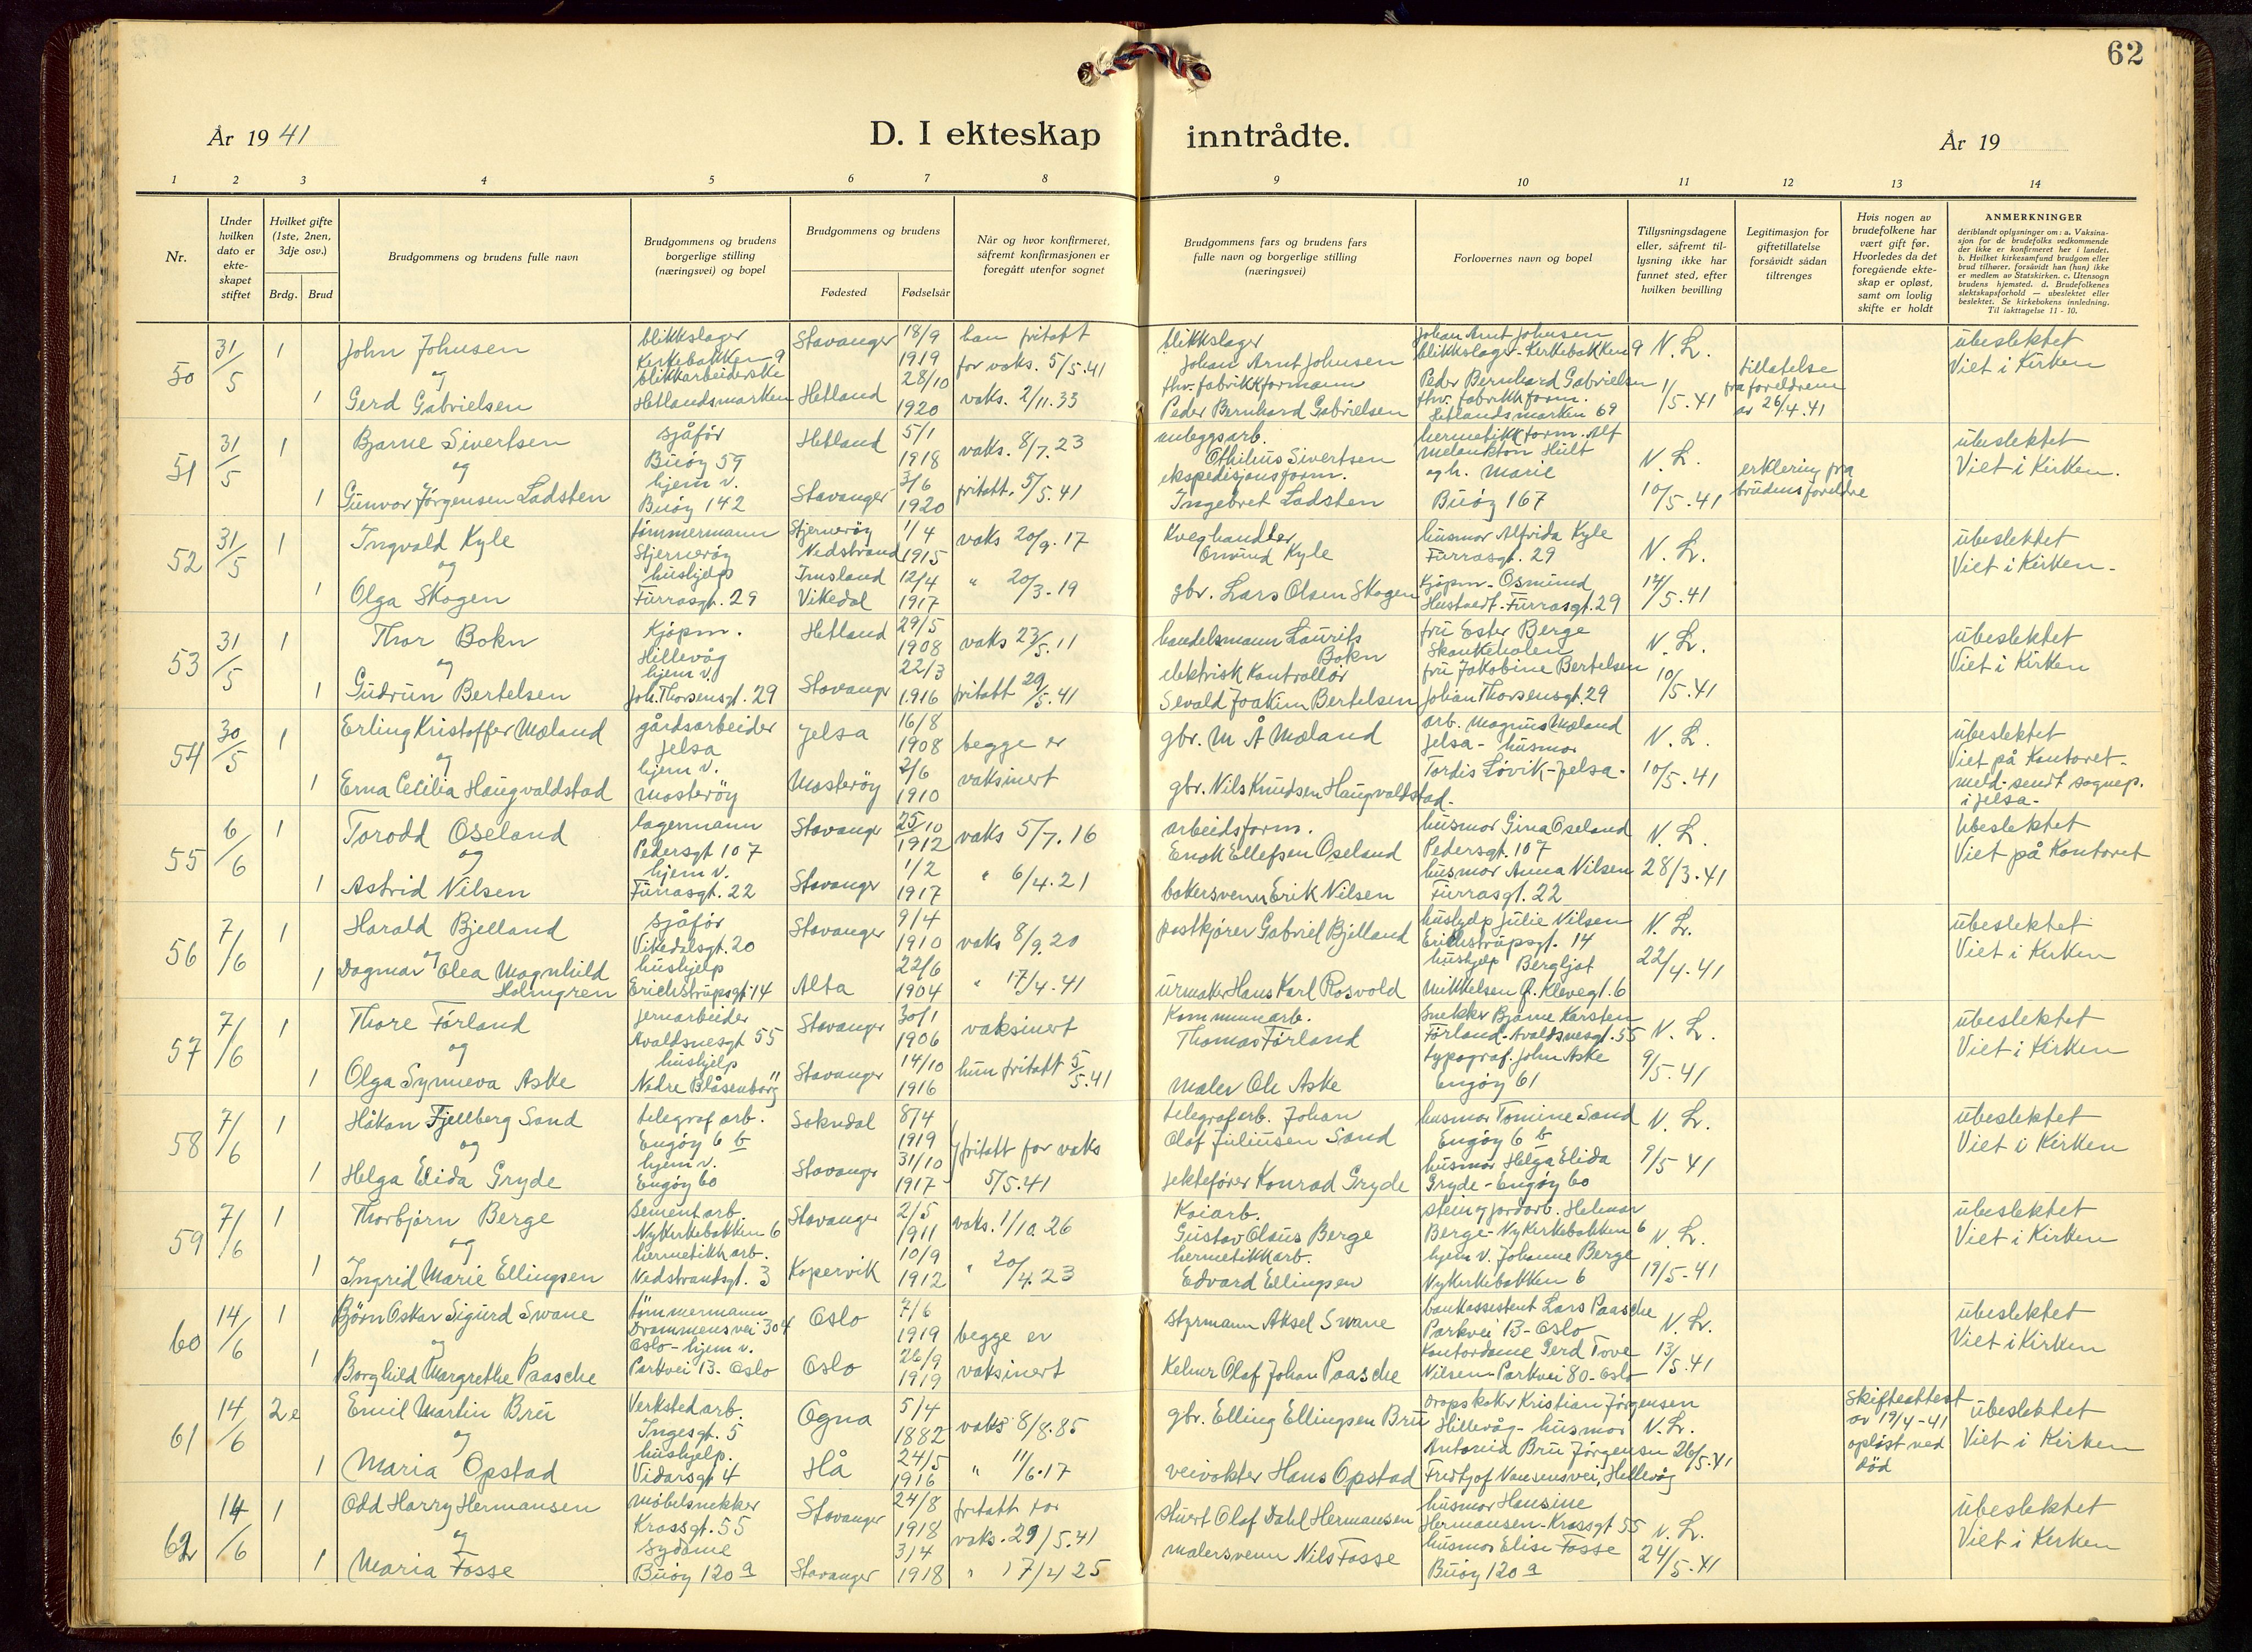 62
År 1941
D. I ekteskap inntrådte.
År 19
1 2 3 4 5 6 7 8 9 10 11 12 13 14
Nr.
Under hvilken dato er ekte-skapet stiftet
Hvilket gifte (1ste, 2nen, 3dje osv.)
Brdg.
Brud
Brudgommens og brudens fulle navn
Brudgommens og brudens borgerlige stilling (næringsvei) og bopel
Brudgommens og brudens
Fødested
Fødselsår
Når og hvor konfirmeret, såfremt konfirmasjonen er foregått utenfor sognet
Brudgommens fars og brudens fars fulle navn og borgerlige stilling (næringsvei)
Forlovernes navn og bopel
Tillysningsdagene eller, såfremt til-lysning ikke har funnet sted, efter hvilken bevilling
Legitimasjon for giftetillatelse forsåvidt sådan tiltrenges
Hvis nogen av brudefolkene har vært gift før. Hvorledes da det foregående ekte-skap er opløst, samt om lovlig skifte er holdt
ANMERKNINGER
deriblandt oplysninger om: a. Vaksina-sjon for de brudefolks vedkommende der ikke er konfirmeret her i landet. b. Hvilket kirkesamfund brudgom eller brud tilhører, forsåvidt han (hun) ikke er medlem av Statskirken. c. Utensogn brudens hjemsted. d. Brudefolkenes slektskapsforhold — ubeslektet eller beslektet. Se kirkebokens innledning. Til iakttagelse 11 - 10.
50 31/5 1 John Johnsen blikkslager Kirkebakken 9 Stavanger 18/9 1919 han fritatt for vaks. 5/5.41 blikkslager Johan Arnt Johnsen Johan Arnt Johnsen blikkslager - Kirkebakken 9 N. L. ubeslektet
og
1 Gerd Gabrielsen blikkarbeiderske Hetlandsmarken Hetland 28/10 1920 vaks. 2/11.33 fhv. fabrikkformann Peder Bernhard Gabrielsen Peder Bernhard Gabrielsen fhv. fabrikkform. Hetlandsmarken 69 1/5.41 tillatelse fra foreldrene av 26/4.41 Viet i Kirken
51 31/5 1 Bjarne Sivertsen sjåfør Buøy 59 Hetland 5/1 1918 vaks. 8/7.23 anleggsarb. Othilius Sivertsen hermetikkform. Alf Melankton Hult N. L. ubeslektet
og
1 Gunvor Jørgensen Ladsten hjem v. Buøy 142 Stavanger 3/6 1920 fritatt. 5/5.41 ekspedisjonsform. Ingebret Ladsten og h. Marie Buøy 167 10/5.41 erklering fra brudens foreldre Viet i Kirken.
52 31/5 1 Ingvald Kyle tømmermann Stjernerøy Stjernerøy Nedstrand 1/4 1915 vaks 20/9.17 Kveghandler Omund Kyle husmor Alfrida Kyle Furrasgt. 29 N. L. ubeslektet
og
1 Olga Skogen hushjelp Furrasgt. 29 Imsland Vikedal 12/4 1917 " 20/3.19 gbr. Lars Olsen Skogen Kjøpm. Osmund Hustoedt - Furrasgt. 29 14/5.41 Viet i Kirken.
53 31/5 1 Thor Bokn Kjøpm. Hillevåg Hetland 29/5 1908 vaks 23/5.11 handelsmann Laurits Bokn fru Ester Berge Skankeholen N. L. ubeslektet
og
1 Gudrun Bertelsen hjem v. Joh. Thorsensgt. 29 Stavanger 22/3 1916 fritatt 29/5.41 elektrisk Kontrollør Sevald Joakim Bertelsen fru Jakobine Bertelsen Johan Thorsensgt. 29 10/5.41 Viet i Kirken
54 30/5 1 Erling Kristoffer Mæland gårdsarbeider Jelsa Jelsa 16/8 1908 begge er gbr. M Å Mæland arb. Magnus Mæland Jelsa - husmor N. L. ubeslektet
og
1 Erna Cecilia Haugvaldstad hjem v. Mosterøy Mosterøy 2/6 1910 vaksinert gbr. Nils Knudsen Haugvaldstad. Tordis Løvik - Jelsa. 10/5.41 Viet på Kontoret. meld. sendt sognep. i Jelsa.
55 6/6 1 Torodd Oseland lagermann Pedersgt 107 Stavanger 25/10 1912 vaks 5/7.16 arbeidsform. Enok Ellefsen Oseland husmor Gina Oseland Pedersgt. 107 N. L. Ubeslektet
og
1 Astrid Nilsen hjem v. Furrasgt. 22 Stavanger 1/2 1917 " 6/4.21 bakersvenn Erik Nilsen husmor Anna Nilsen Furrasgt. 22 28/3.41 Viet på Kontoret
56 7/6 1 Harald Bjelland sjåfør Vikedalsgt. 20 Stavanger 9/4 1910 vaks 8/9.20 postkjører Gabriel Bjelland hushjelp Julie Nilsen Erichstrupsgt. 14 N. L. ubeslektet
og
1 Dagmar Olea Magnhild Holmgren hushjelp Erichstrupsgt. 14 Alta 22/6 1904 " 17/4.41 urmaker Hans Karl Rosvold hushjelp Bergljot Mikkelsen J. Klevegt. 6 22/4.41 Viet i Kirken
57 7/6 1 Thore Førland jernarbeider Avaldsnesgt 55 Stavanger 30/1 1906 vaksinert Kommunearb. Thomas Førland Snekker Bjarne Karsten Førland - Avaldsnesgt. 55 N. L. ubeslektet
og
1 Olga Synneva Aske hushjelp Nedre Blåsenborg 11 Stavanger 14/10 1916 hun fritatt 5/5.41 Maler Ole Aske typograf. John Aske Engøy 61 9/5.41 Viet i Kirken
58 7/6 1 Håkon Fjellberg Sand telegraf arb. Engøy 6 b Sokndal 8/4 1919 fritatt for vaks telegrafarb. Johan Olaf Juliusen Sand husmor Tomine Sand Engøy 6 b N. L. ubeslektet
og
1 Helga Elida Gryde hjem v. Engøy 60 Stavanger 31/10 1917 5/5.41 jektefører Konrad Gryde husmor Helga Elida Gryde - Engøy 60 9/5 41 Viet i Kirken
59 7/6 1 Thorbjørn Berge Sementarb. Nykirkebakken 6 Stavanger 2/5 1911 vaks. 1/10.26 Kaiarb. Gustav Olaus Berge stein og jordarb. Helmar Berge - Nykirkebakken 6 N. L. ubeslektet
og
1 Ingrid Marie Ellingsen hermetikkarb. Nedstrandsgt. 3 Kopervik 10/9 1912 " 20/4.23 hermetikkarb. Edvard Ellingsen hjem v. Johanne Berge Nykirkebakken 6 19/5.41 Viet i Kirken
60 14/6 1 Bjørn Oskar Sigurd Swane tømmermann Drammensvei 304 Oslo Oslo 7/6 1919 begge er styrmann Aksel Swane bankassistent Lars Paasche Parkvei 13 - Oslo N. L. ubeslektet
og
1 Borghild Margrethe Paasche hjem v. Parkvei 13. Oslo Oslo 26/9 1919 vaksinert Kelner Olaf Johan Paasche Kontordame Gerd Tove Nilsen - Parkvei 80 - Oslo 13/5.41 Viet i Kirken
61 14/6 2e Emil Martin Bru Verkstedarb. Ingesgt. 5 Ogna 5/4 1882 vaks 8/8.85 gbr. Elling Ellingsen Bru oropskoker Kristian Jørgensen Hillevåg - husmor N. L. Skifteattest av 19/4-41 ubeslektet
og
1 Maria Opstad hushjelp. Vidarsgt 4 Hå 24/5 1916 " 11/6.17 veivokter Hans Opstad Antonia Bru Jørgensen Fridtjof Nansensvei, Hillevåg 26/5.41 opløst ved død Viet i Kirken
62 14/6 1 Odd Harry Hermansen møbelsnekker Krossgt. 55 Stavanger 24/8 1918 fritatt for vaks. 29/5.41 stuert Olaf Dahl Hermansen husmor Hansine Hermansen - Krossgt 55 N. L. ubeslektet
og
1 Maria Fosse Sydame Buøy 120 a Stavanger 3/4 1918 " 17/4 25 malersvenn Nils Fosse husmor Elise Fosse Buøy 120 a 24/5.41 Viet i Kirken